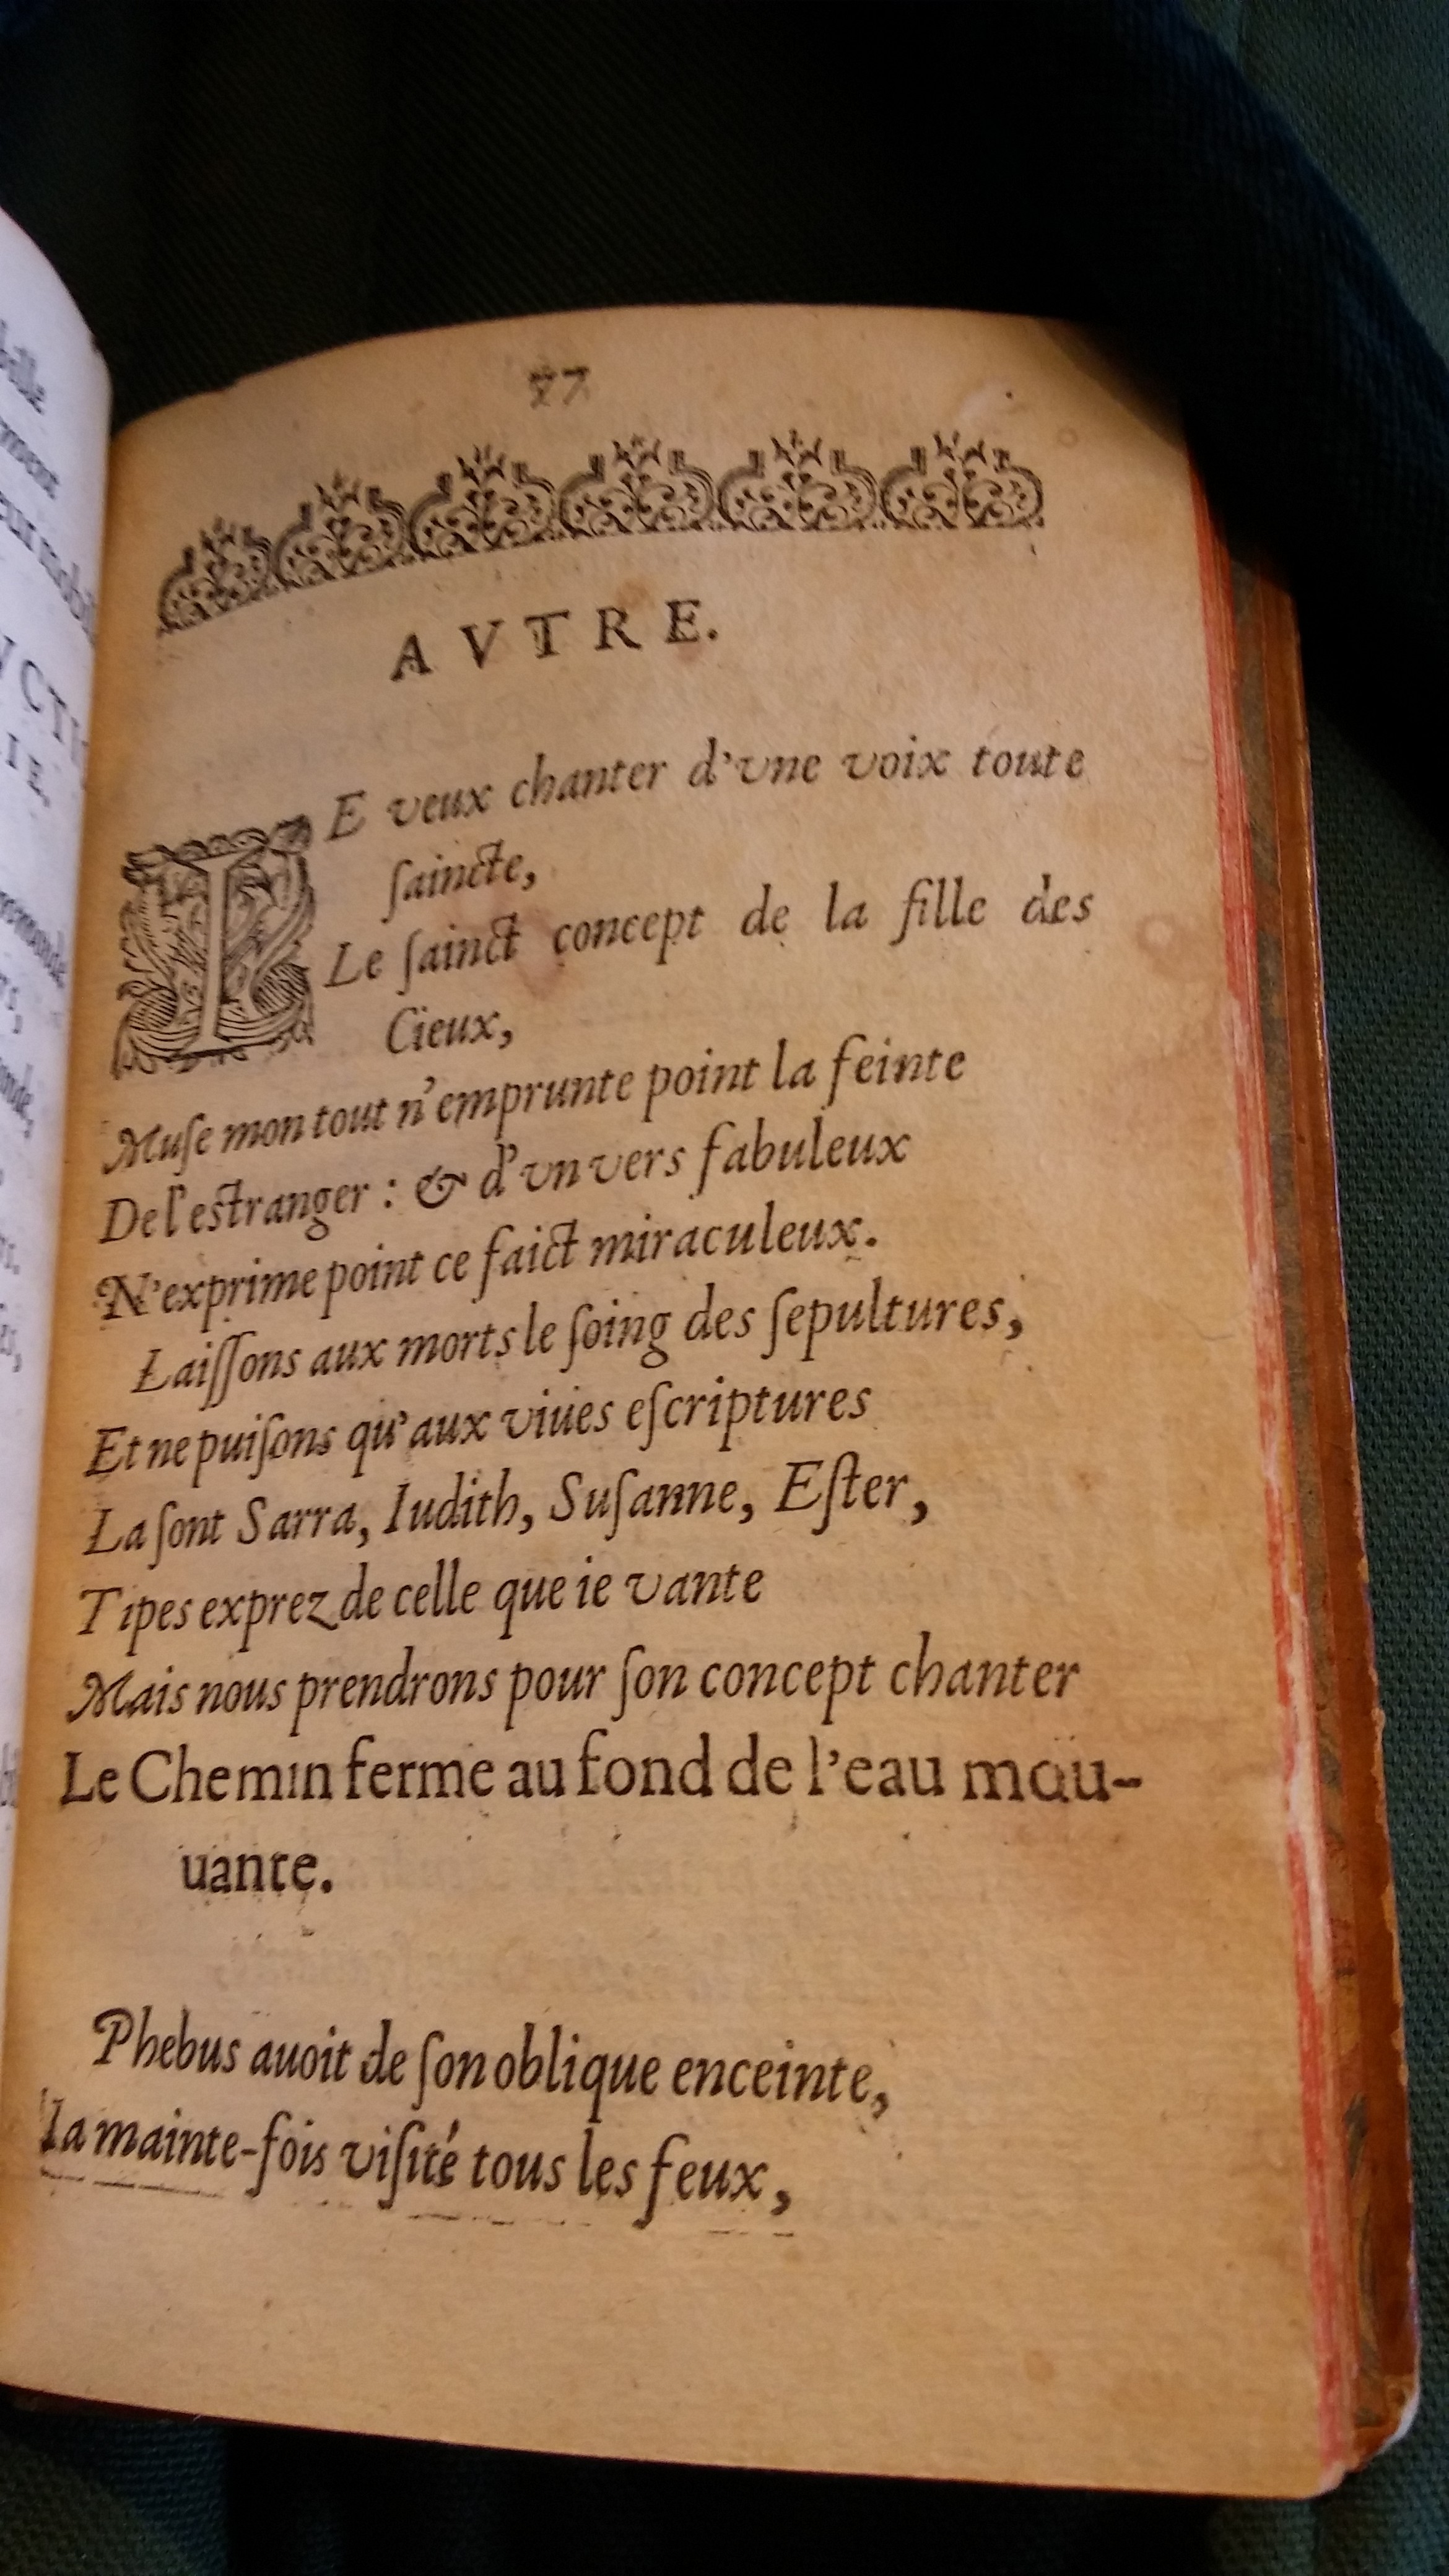 27
AVTRE.
IE veux chanter d'vne voix toute
ſaincte,
Le ſainct concept de la fille des
Cieux,
Muſe mon tout n'emprunte point la feinte
De l'eſtranger : & d'vn vers fabuleux
N'exprime point ce faict miraculeux.
Laiſſons aux morts le ſoing des ſepultures,
Et ne puiſons qu'aux viues eſcriptures
La ſont Sarra, Iudith, Suſanne, Eſter,
Tipes exprez de celle que ie vante
Mais nous prendrons pour ſon concept chanter
Le Chemin ferme au fond de l'eau mou-
uante.
Phebus auoit de ſon oblique enceinte,
Ia mainte-fois viſité tous les feux,